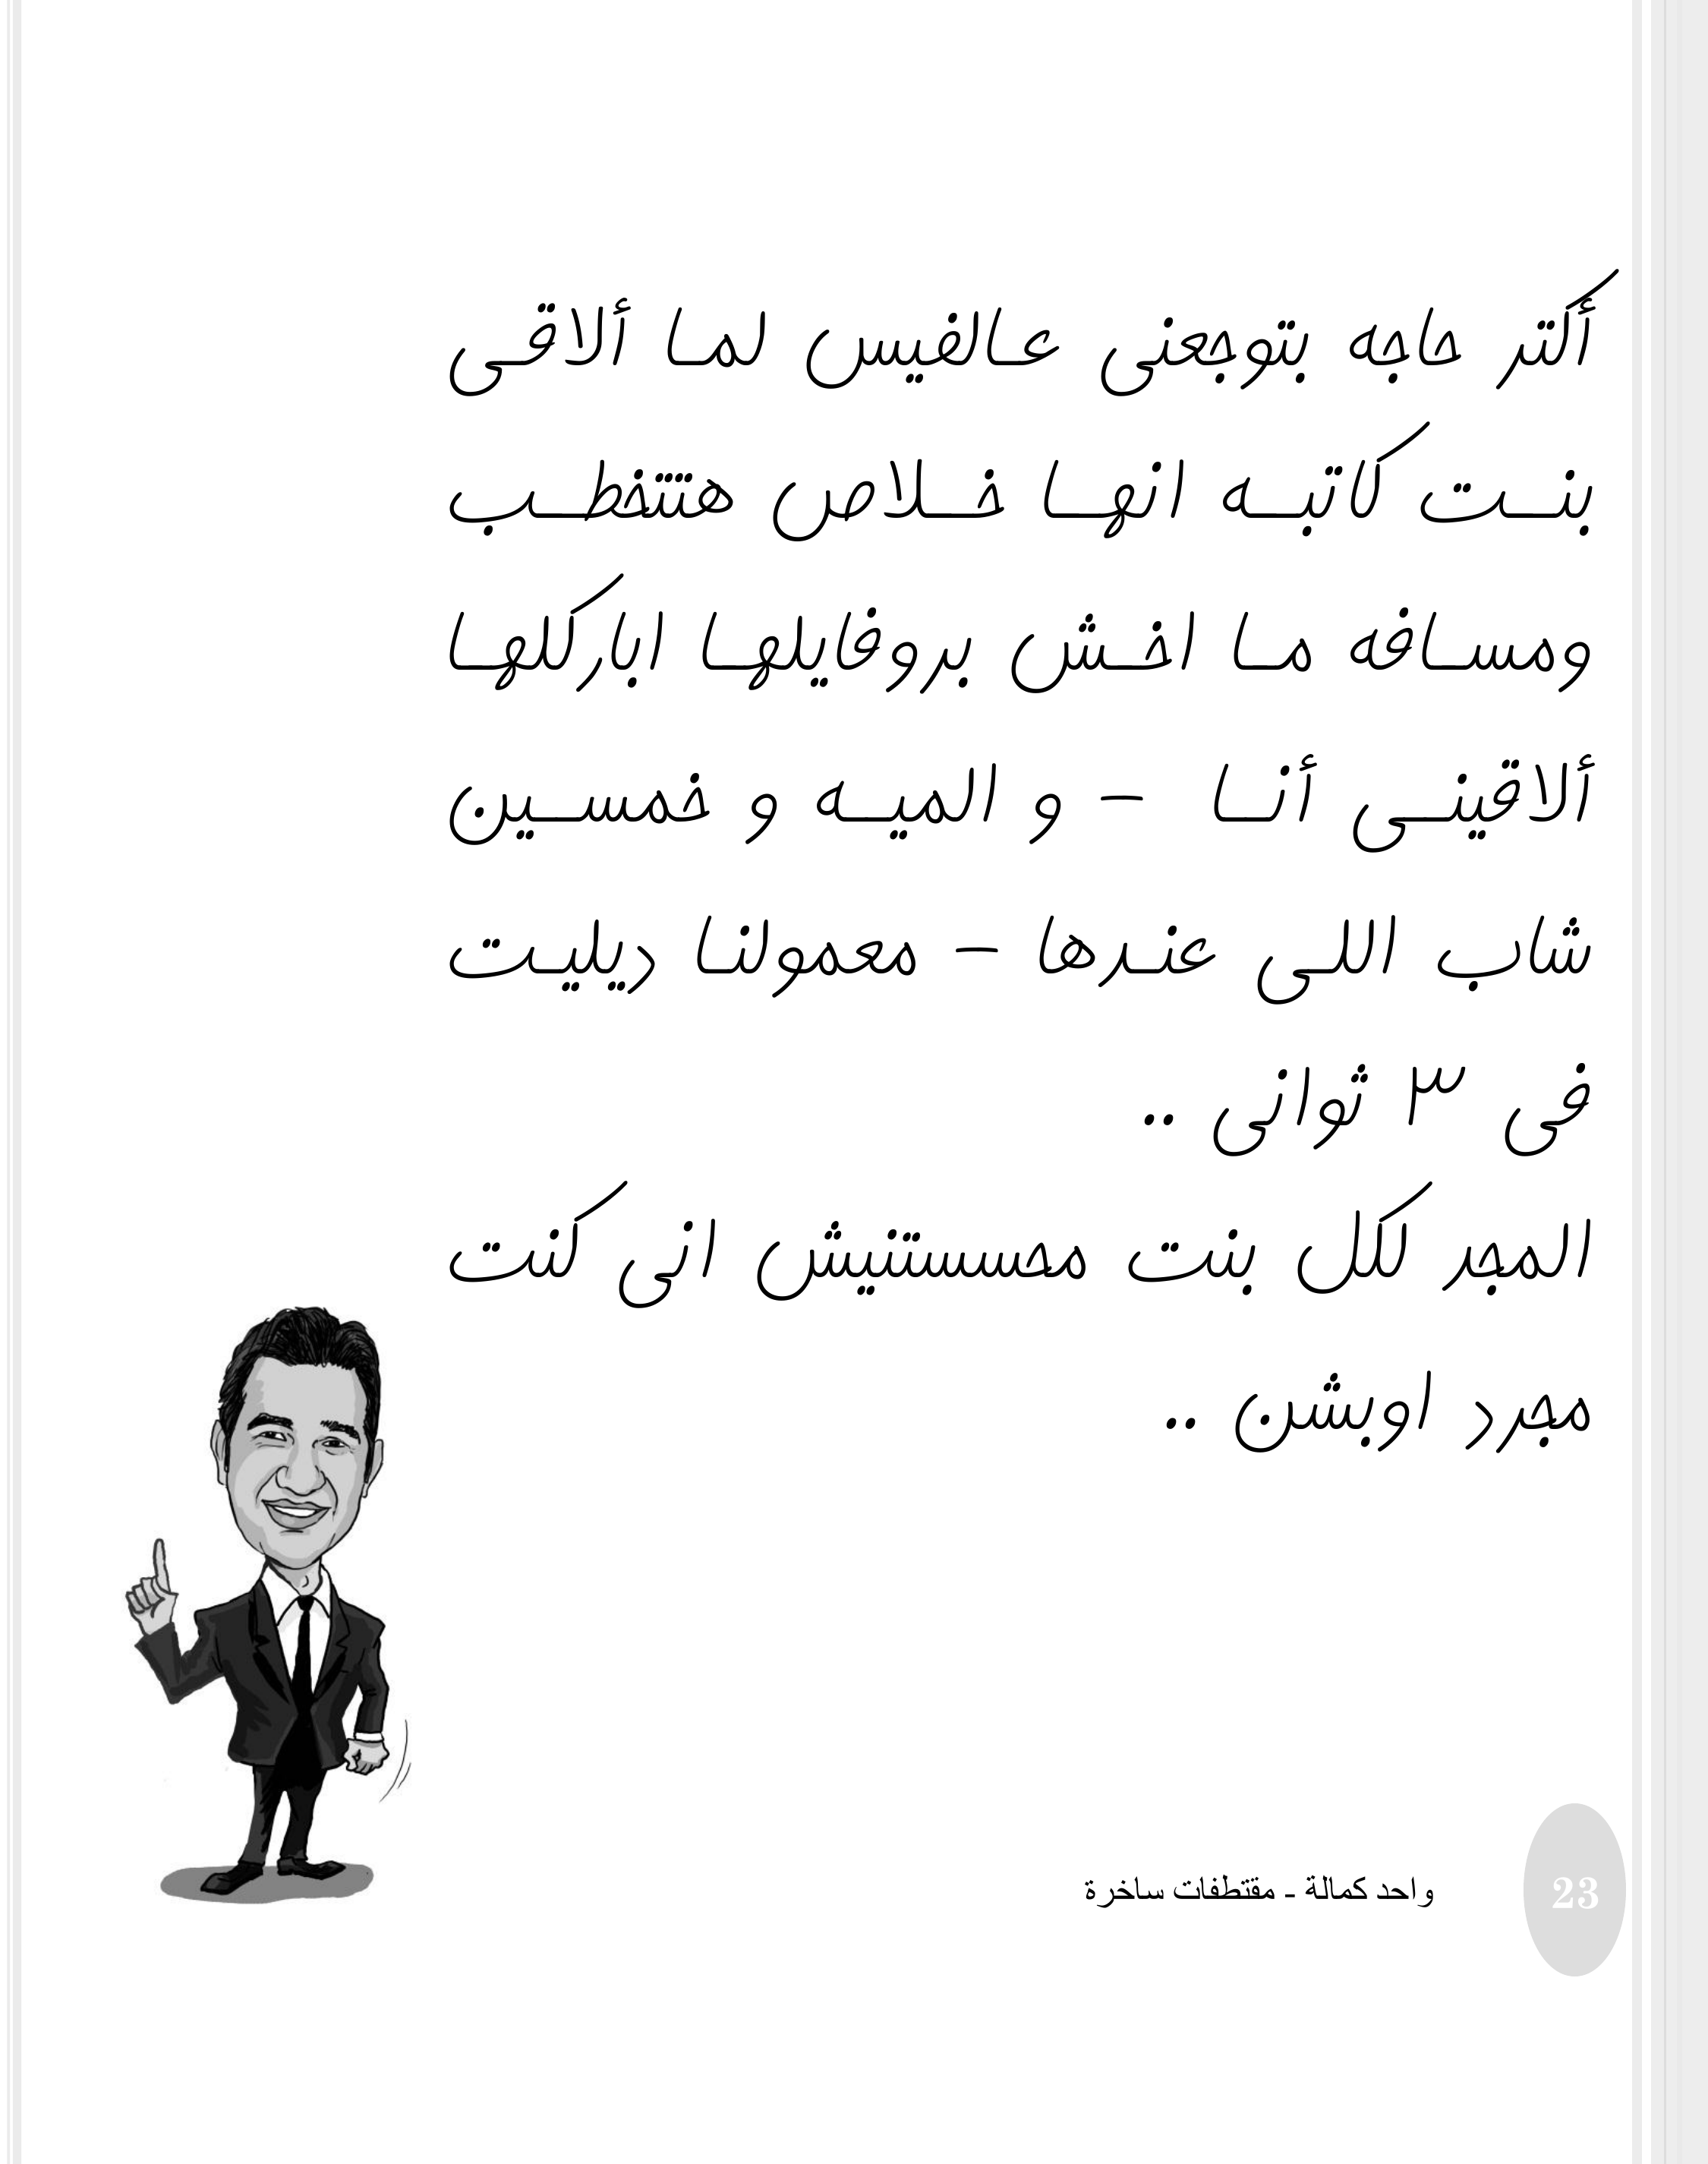 أكتر حاجه بتوجعنى عالفيس لما ألاقى
بنت كاتبه انها خلاص هتتخطب
ومسافه ما اخش بروفايلها اباركلها
ألاقينى أنا – و الميه و خمسين
شاب اللى عندها – معمولنا ديليت
فى ٣ ثوانى ..
المجد لكل بنت محسستنيش انى كنت
مجرد اوبشن ..
واحد كمالة - مقتطفات ساخرة
23